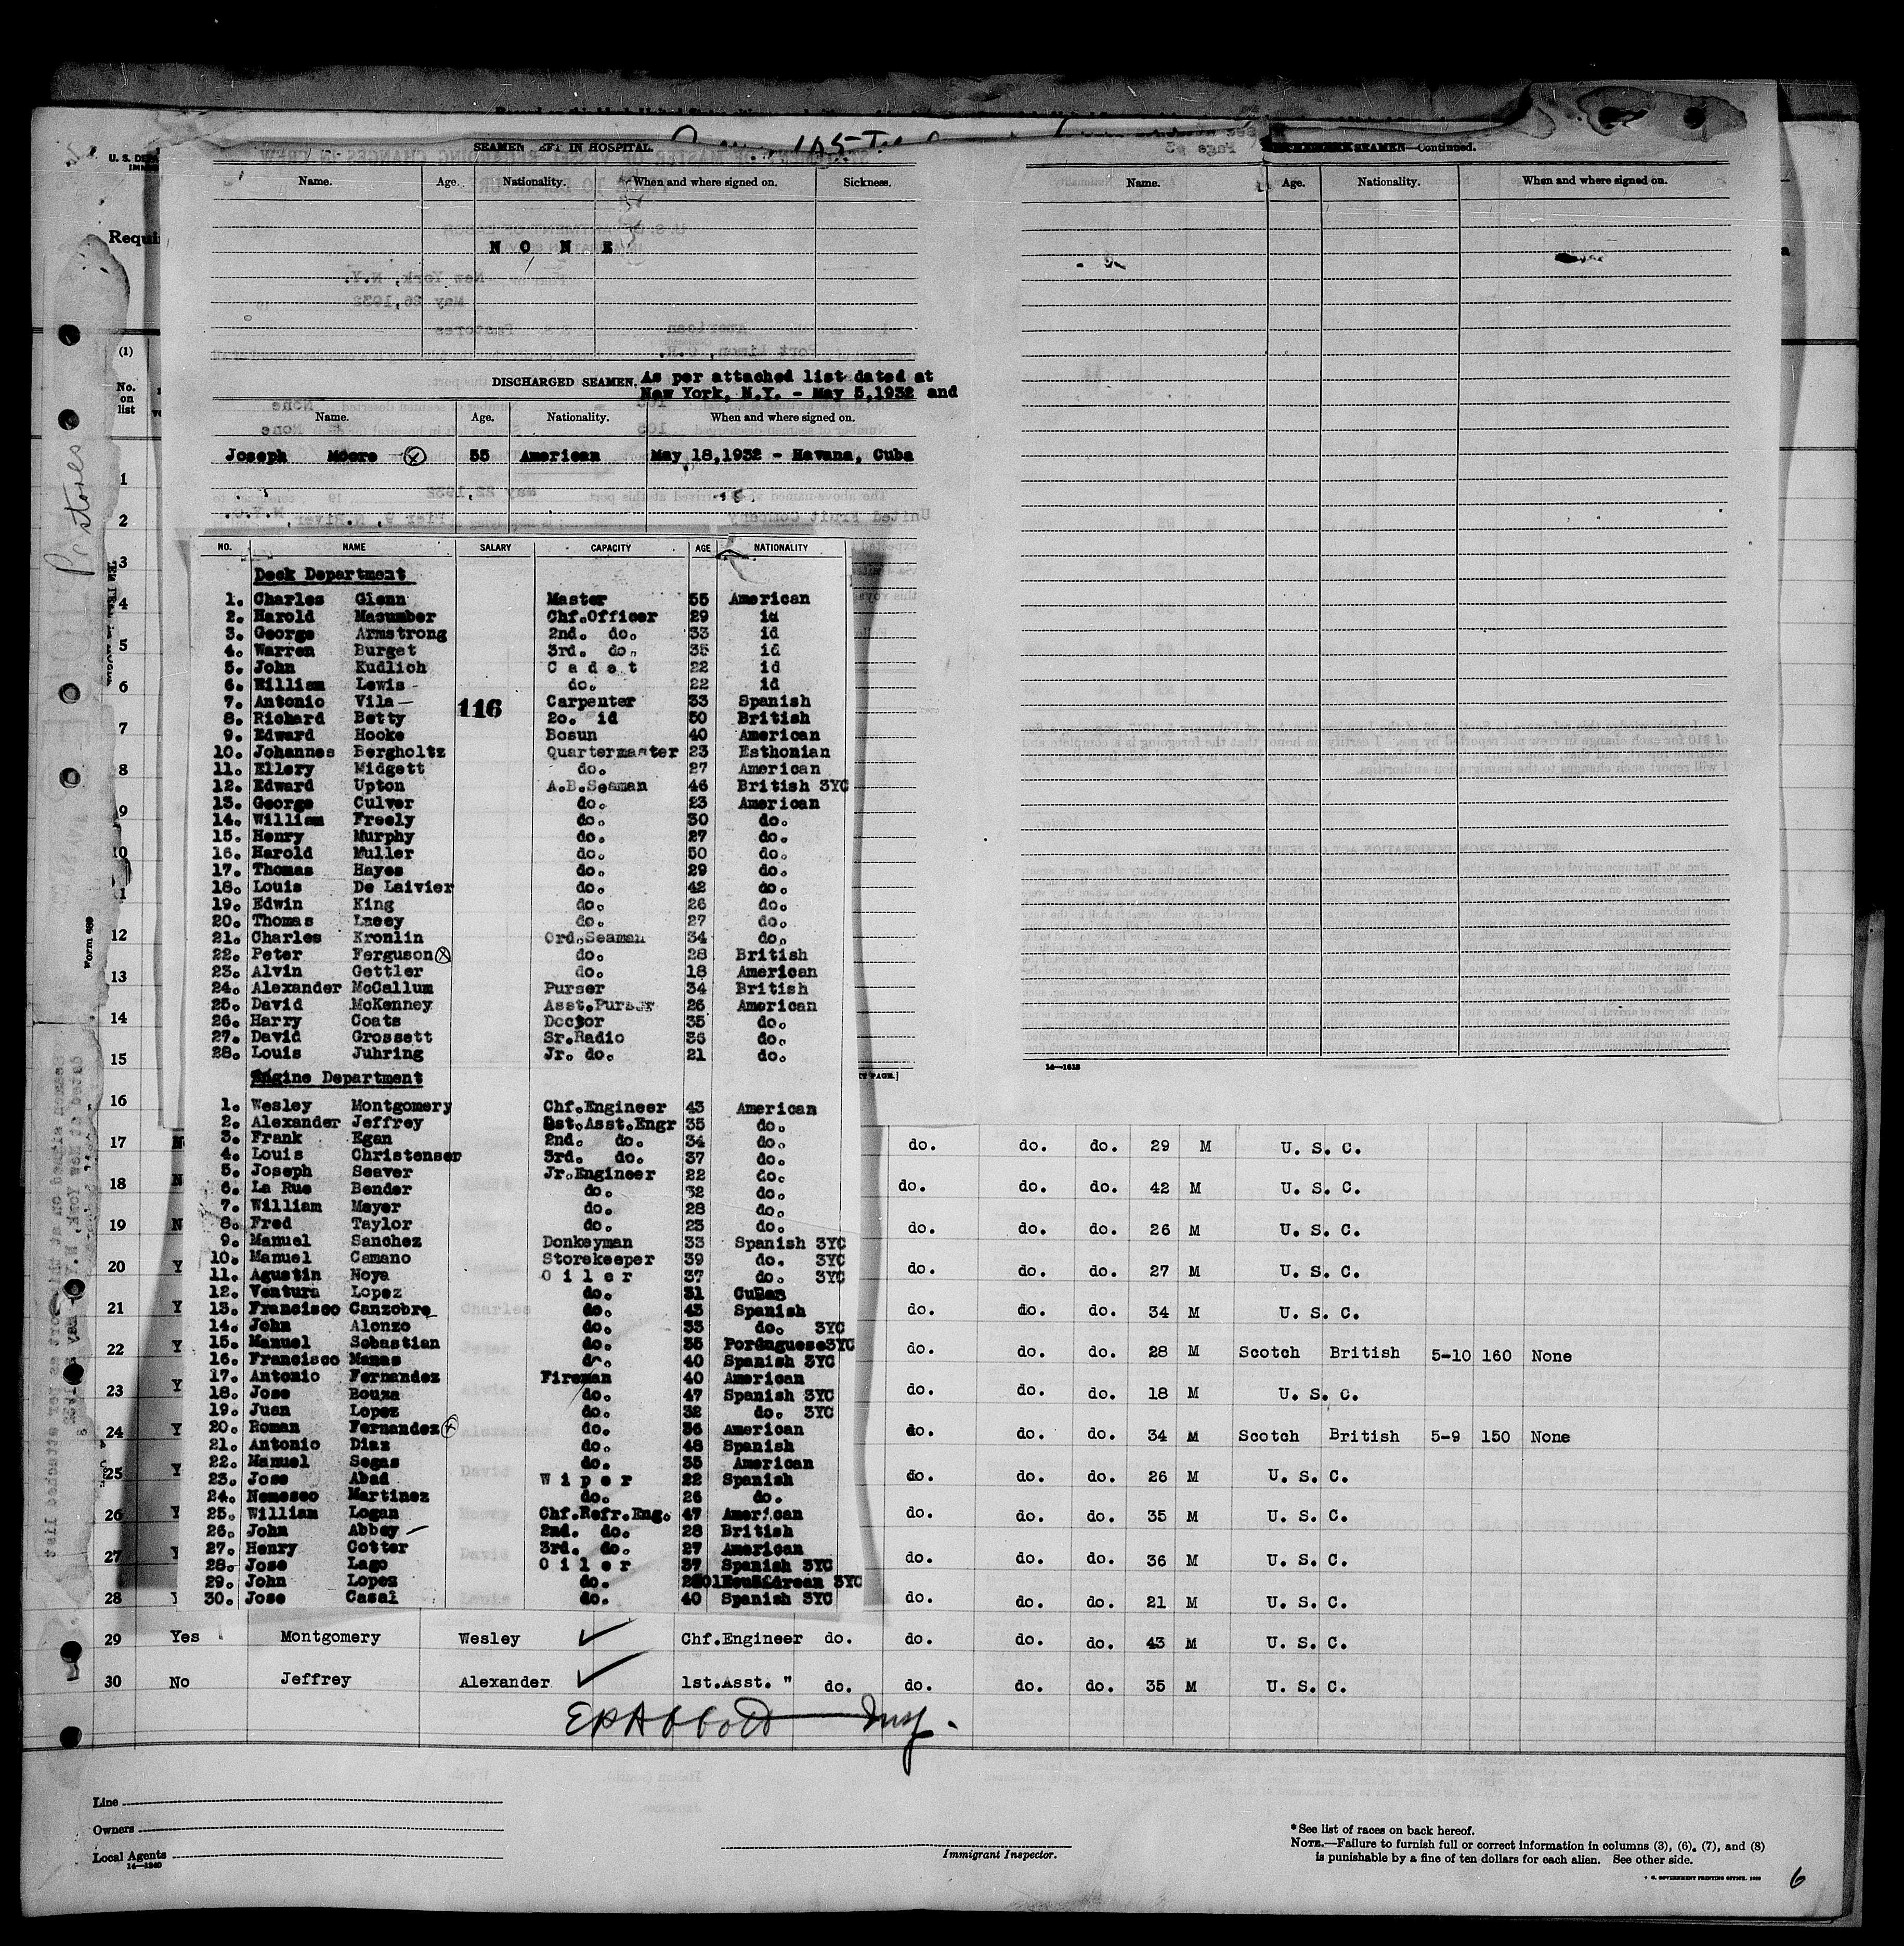 SEAMEN LEFT IN HOSPITAL.
Name. Age. Nationality. When and where signed on. Sickness.
N O N E
DISCHARGED SEAMEN. As per attached list dated at
New York, N.Y. - May 5,1932 and
Name. Age. Nationality. When and where signed on.
Joseph Moore 55 American May 18,1932 - Havana, Cuba
SEAMEN—Continued.
Name. Age. Nationality. When and where signed on.
14—1618
NO. NAME SALARY CAPACITY AGE NATIONALITY
Deck Department
1. Charles Glenn Master 55 American
2. Harold Macumber Chf.Officer 29 id
3. George Armstrong 2nd. do. 33 id
4. Warren Burget 3rd. do. 35 id
5. John Kudlich C a d e t 22 id
6. William Lewis do. 22 id
7. Antonio Vila Carpenter 33 Spanish
116
8. Richard Betty 2o. id 50 British
9. Edward Hooke Bosun 40 American
10. Johannes Bergholtz Quartermaster 23 Esthonian
11. Ellery Midgett do. 27 American
12. Edward Upton A.B.Seaman 46 British 3YC
13. George Culver do. 23 American
14. William Freely do. 30 do.
15. Henry Murphy do. 27 do.
16. Harold Muller do. 50 do.
17. Thomas Hayes do. 29 do.
18. Louis De Laivier do. 42 do.
19. Edwin King do. 26 do.
20. Thomas Lacey do. 27 do.
21. Charles Kronlin Ord.Seaman 34 do.
22. Peter Ferguson do. 28 British
23. Alvin Gettler do. 18 American
24. Alexander McCallum Purser 34 British
25. David McKenney Asst.Purser 26 American
26. Harry Coats Doctor 35 do.
27. David Grossett Sr.Radio 36 do.
28. Louis Juhring Jr. do. 21 do.
Engine Department
1. Wesley Montgomery Chf.Engineer 43 American
2. Alexander Jeffrey 1st.Asst.Engr 35 do.
3. Frank Egan 2nd. do. 34 do.
4. Louis Christenser 3rd. do. 37 do.
5. Joseph Seaver Jr.Engineer 22 do.
6. La Rue Bender do. 32 do.
7. William Mayer do. 28 do.
8. Fred Taylor do. 23 do.
9. Manuel Sanchez Donkeyman 33 Spanish 3YC
10. Manuel Camano Storekeeper 39 do. 3YC
11. Agustin Noya O i l e r 37 do. 3YC
12. Ventura Lopez do. 31 Cuban
13. Francisco Canzobre do. 43 Spanish
14. John Alonzo do. 33 do. 3YC
15. Manuel Sebastian do. 35 Portuguese3YC
16. Francisco Manas do. 40 Spanish 3YC
17. Antonio Fernandez Fireman 40 American
18. Jose Bouza do. 47 Spanish 3YC
19. Juan Lopez do. 32 do. 3YC
20. Roman Fernandez do. 36 American
21. Antonio Diaz do. 48 Spanish
22. Manuel Segas do. 35 American
23. Jose Abad W i p e r 22 Spanish
24. Nemesco Martinez do. 26 do.
25. William Logan Chf.Refr.Eng. 47 American
26. John Abbey 2nd. do. 28 British
27. Henry Cotter 3rd. do. 27 American
28. Jose Lago O i l e r 37 Spanish 3YC
29. John Lopez do. 3YC
30. Jose Casal do. 40 Spanish 3YC
Requi
(1)
No. on list
Form 689
1
2
3
4
5
6
7
8
9
10
11
12
13
14
15
16
17 do. do. do. 29 M U. S. C.
18 do. do. do. 42 M U. S. C.
19 do. do. do. 26 M U. S. C.
20 do. do. do. 27 M U. S. C.
21 do. do. do. 34 M U. S. C.
22 do. do. do. 28 M Scotch British 5-10 160 None
23 do. do. do. 18 M U. S. C.
24 do. do. do. 34 M Scotch British 5-9 150 None
25 do. do. do. 26 M U. S. C.
26 do. do. do. 35 M U. S. C.
27 do. do. do. 36 M U. S. C.
28 do. do. do. 21 M U. S. C.
29 Yes Montgomery Wesley Chf.Engineer do. do. do. do. 43 M U. S. C.
30 No Jeffrey Alexander 1st.Asst. " do. do. do. do. 35 M U. S. C.
Line
Owners
Local Agents
14—1240
Immigrant Inspector.
*See list of races on back hereof.
NOTE.—Failure to furnish full or correct information in columns (3), (6), (7), and (8)
is punishable by a fine of ten dollars for each alien. See other side.
6